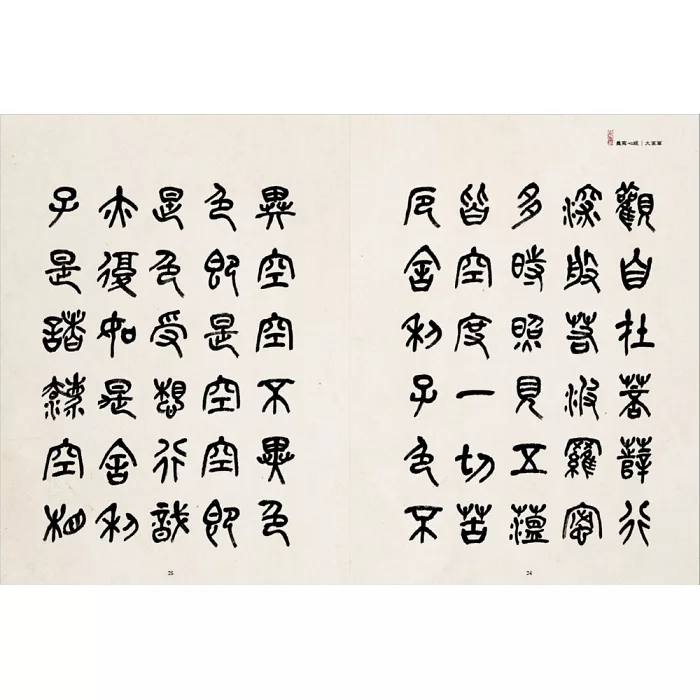 觀自在菩薩行
深般若波羅蜜
多時照見五蘊
皆空度一切苦
厄舍利子色不
24
異空空不異色
色即是空空即
是色受想行識
亦復如是舍利
子是諸法空相
25